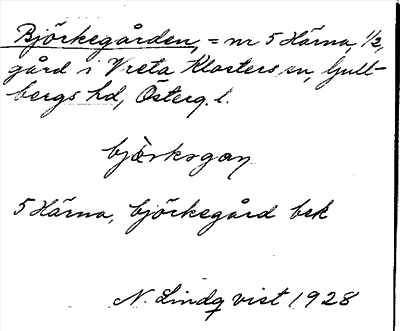 Björkegården, = nr 5 Härna, 1/2,
gård i Vreta Klosters sn, Gull-
bergs hd, Österg. l.
bjærksgan
5 Härna, björkegård bek
N. Lindqvist 1928